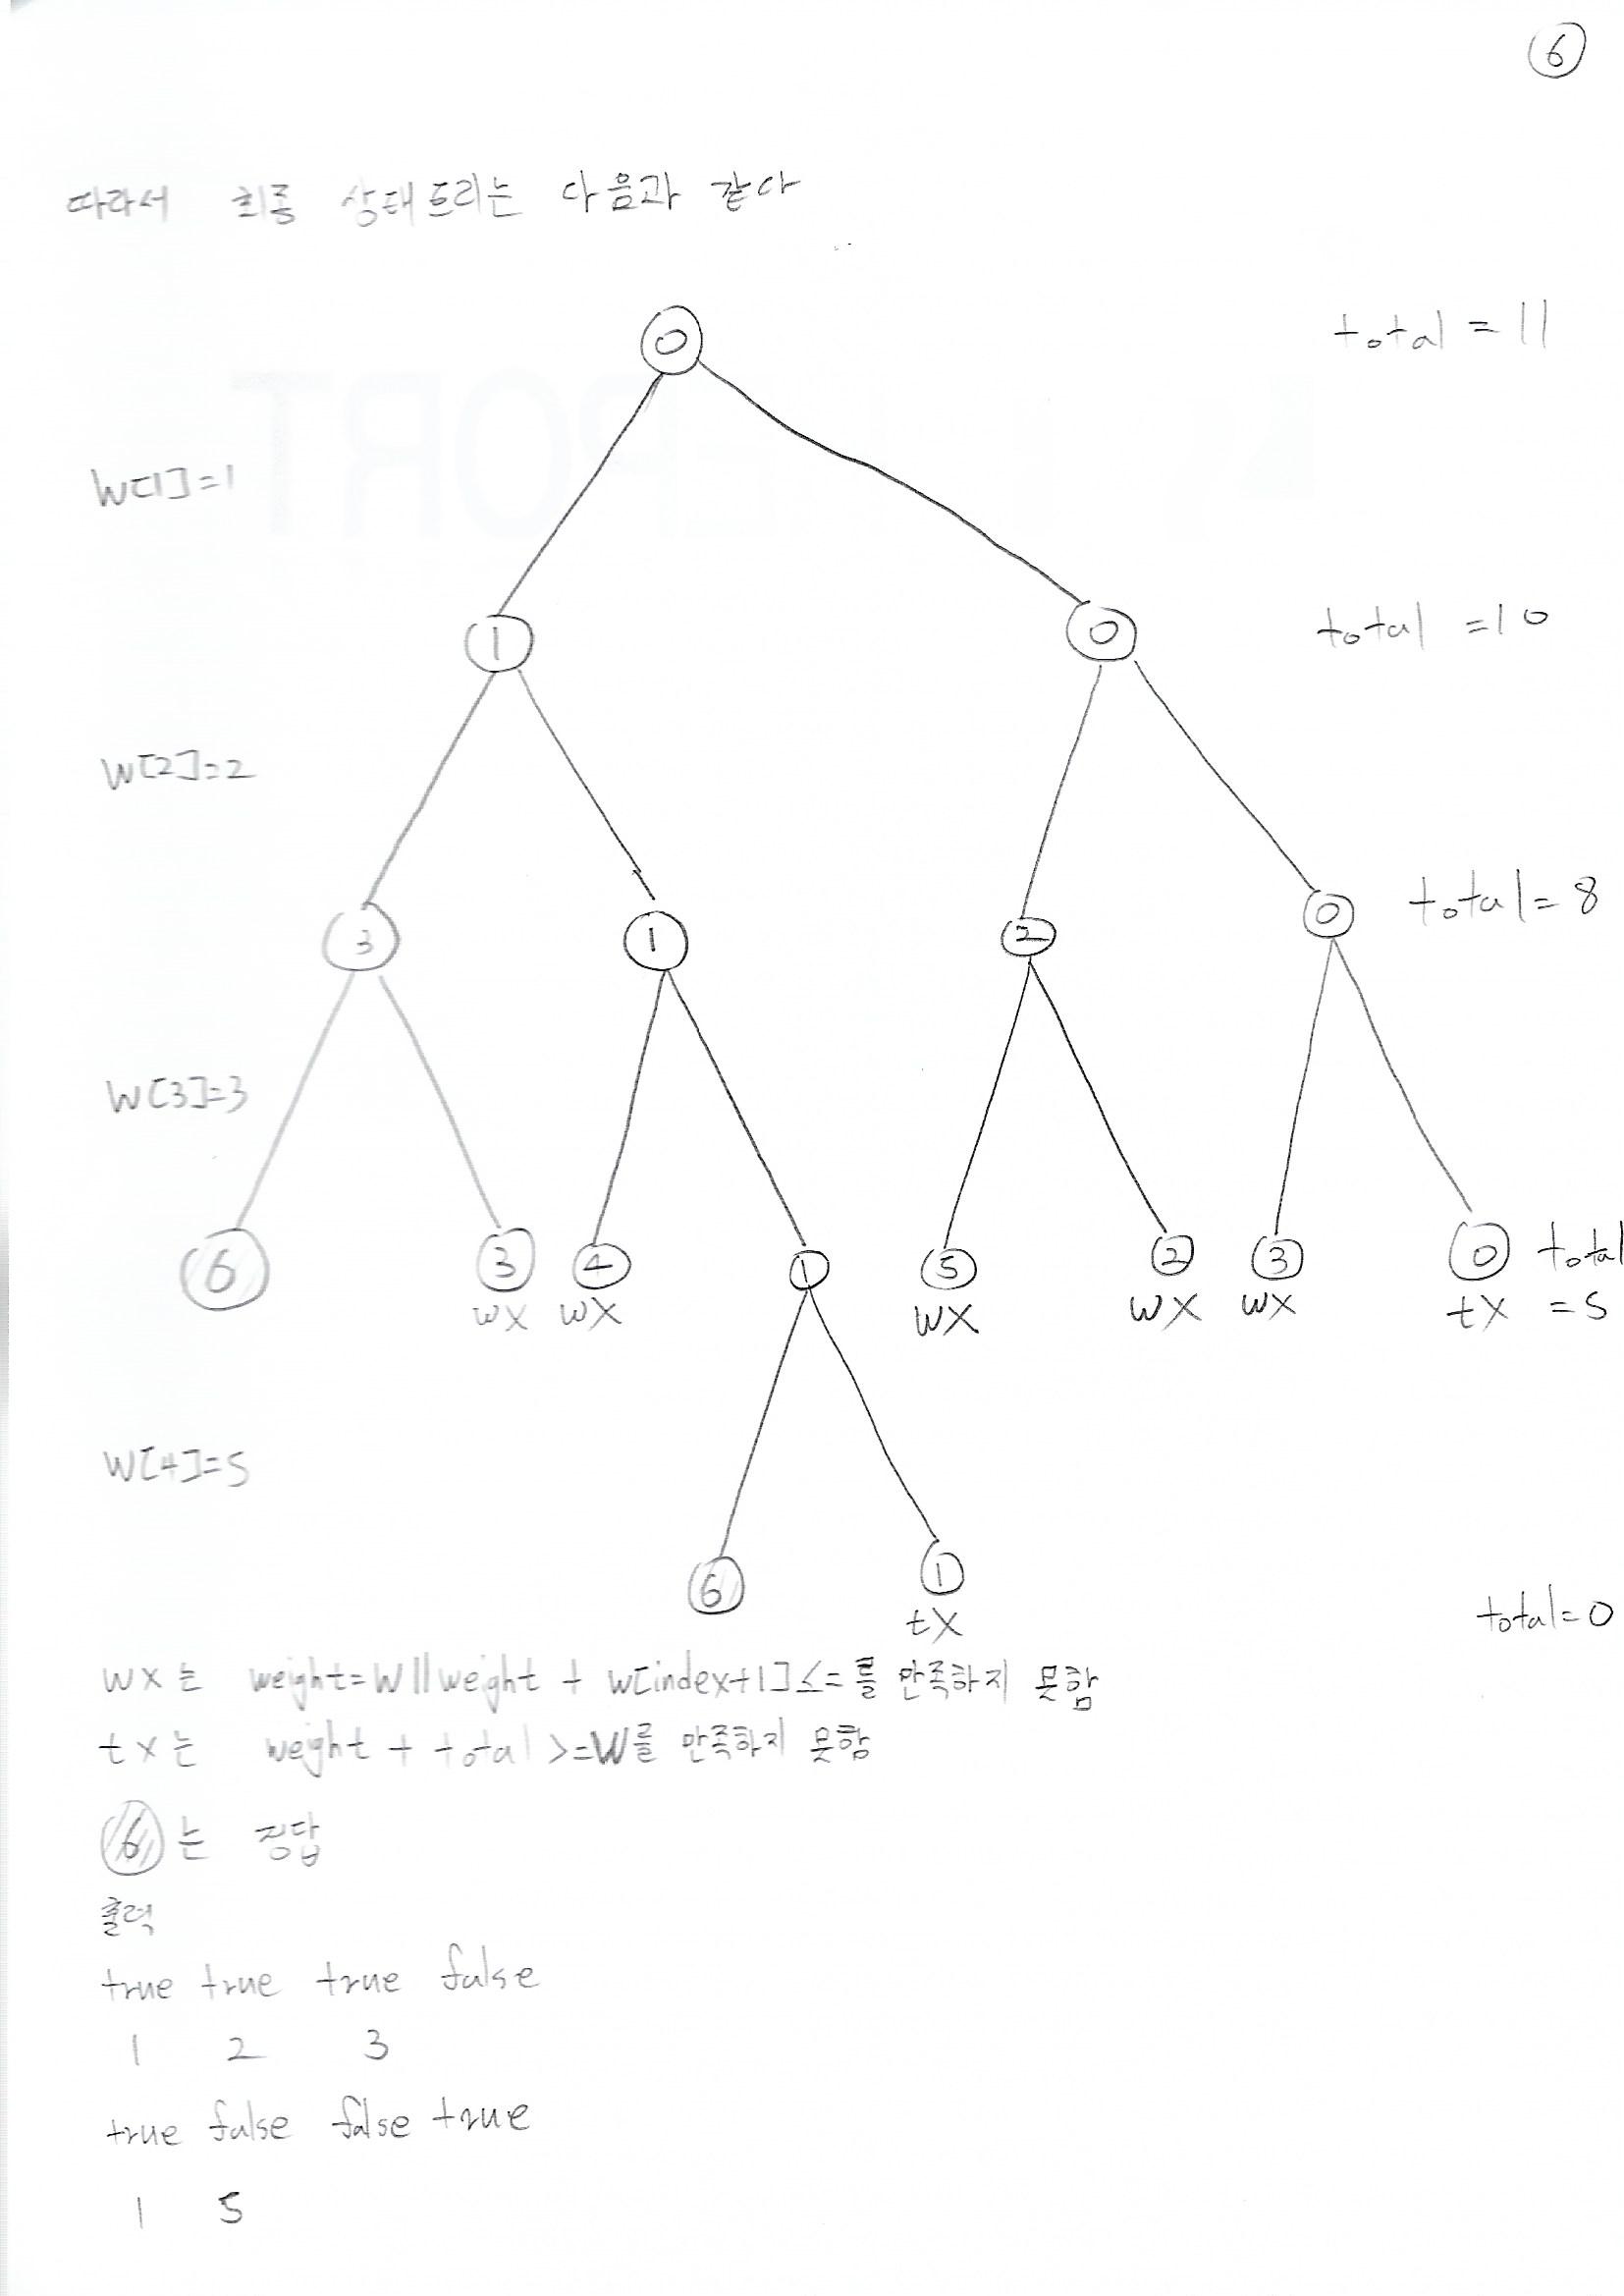 6
따라서 최종 상태트리는 다음과 같다
0 total = 11
W[1]=1
1 0 total = 10
W[2]=2
3 1 2 0 total = 8
W[3]=3
6 3 4 1 5 2 3 0 total
wx wx wx wx wx tx = 5
W[4]=5
6 1
tx total=0
wx는 weight=W||weight + w[index+1]<=를 만족하지 못함
tx는 weight + total >=W를 만족하지 못함
6는 정답
출력
true true true false
1 2 3
true false false true
1 5